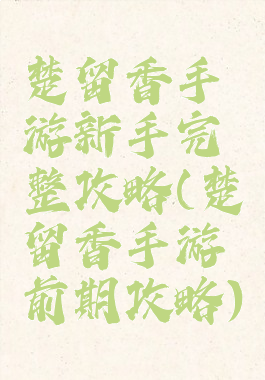 楚留香手
游新手完
整攻略(楚
留香手游
前期攻略)